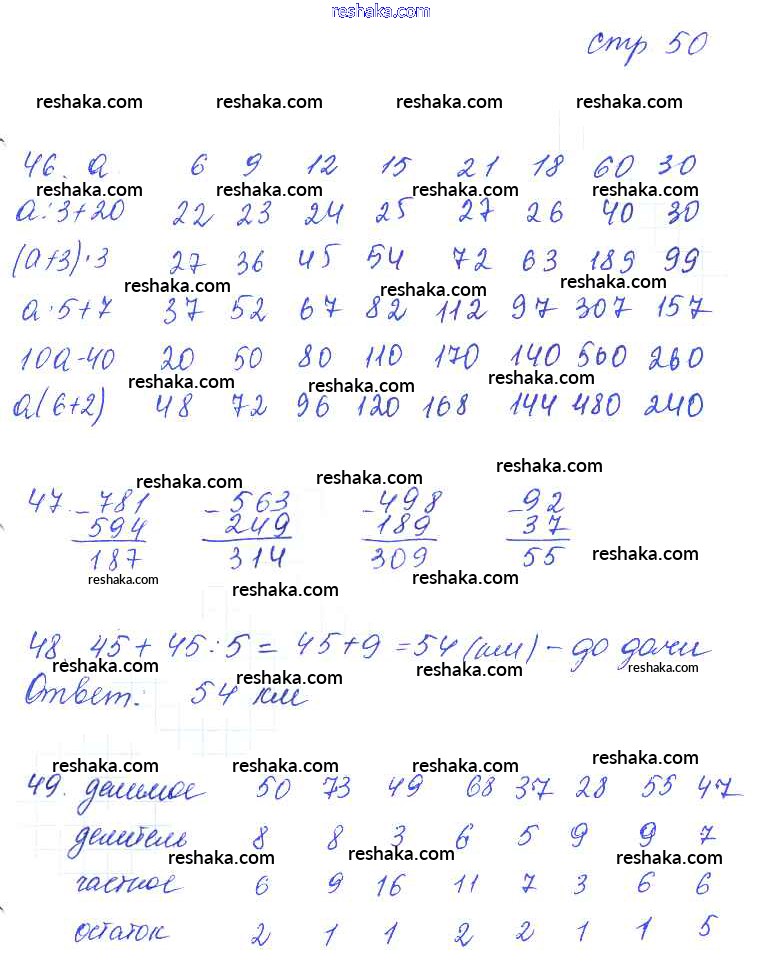 reshaka.com
стр 50
reshaka.com reshaka.com reshaka.com reshaka.com
46. a 6 9 12 15 21 18 60 30
reshaka.com reshaka.com reshaka.com reshaka.com
a:3+20 22 23 24 25 27 26 40 30
(a+3)·3 27 36 45 54 72 63 189 99
reshaka.com reshaka.com reshaka.com
a·5+7 37 52 67 82 112 97 307 157
10a-40 20 50 80 110 170 140 560 260
reshaka.com reshaka.com reshaka.com
a(6+2) 48 72 96 120 168 144 480 240
reshaka.com reshaka.com reshaka.com
47. - 781 - 563 - 498 - 92
594 249 189 37
187 314 309 55
reshaka.com
reshaka.com reshaka.com reshaka.com
48 45 + 45:5 = 45+9 = 54 (км) - до дачи
reshaka.com reshaka.com reshaka.com
Ответ: 54 км
reshaka.com reshaka.com reshaka.com reshaka.com
49. делимое 50 73 49 68 37 28 55 47
делитель 8 8 3 6 5 9 9 7
reshaka.com reshaka.com reshaka.com
частное 6 9 16 11 7 3 6 6
остаток 2 1 1 2 2 1 1 5